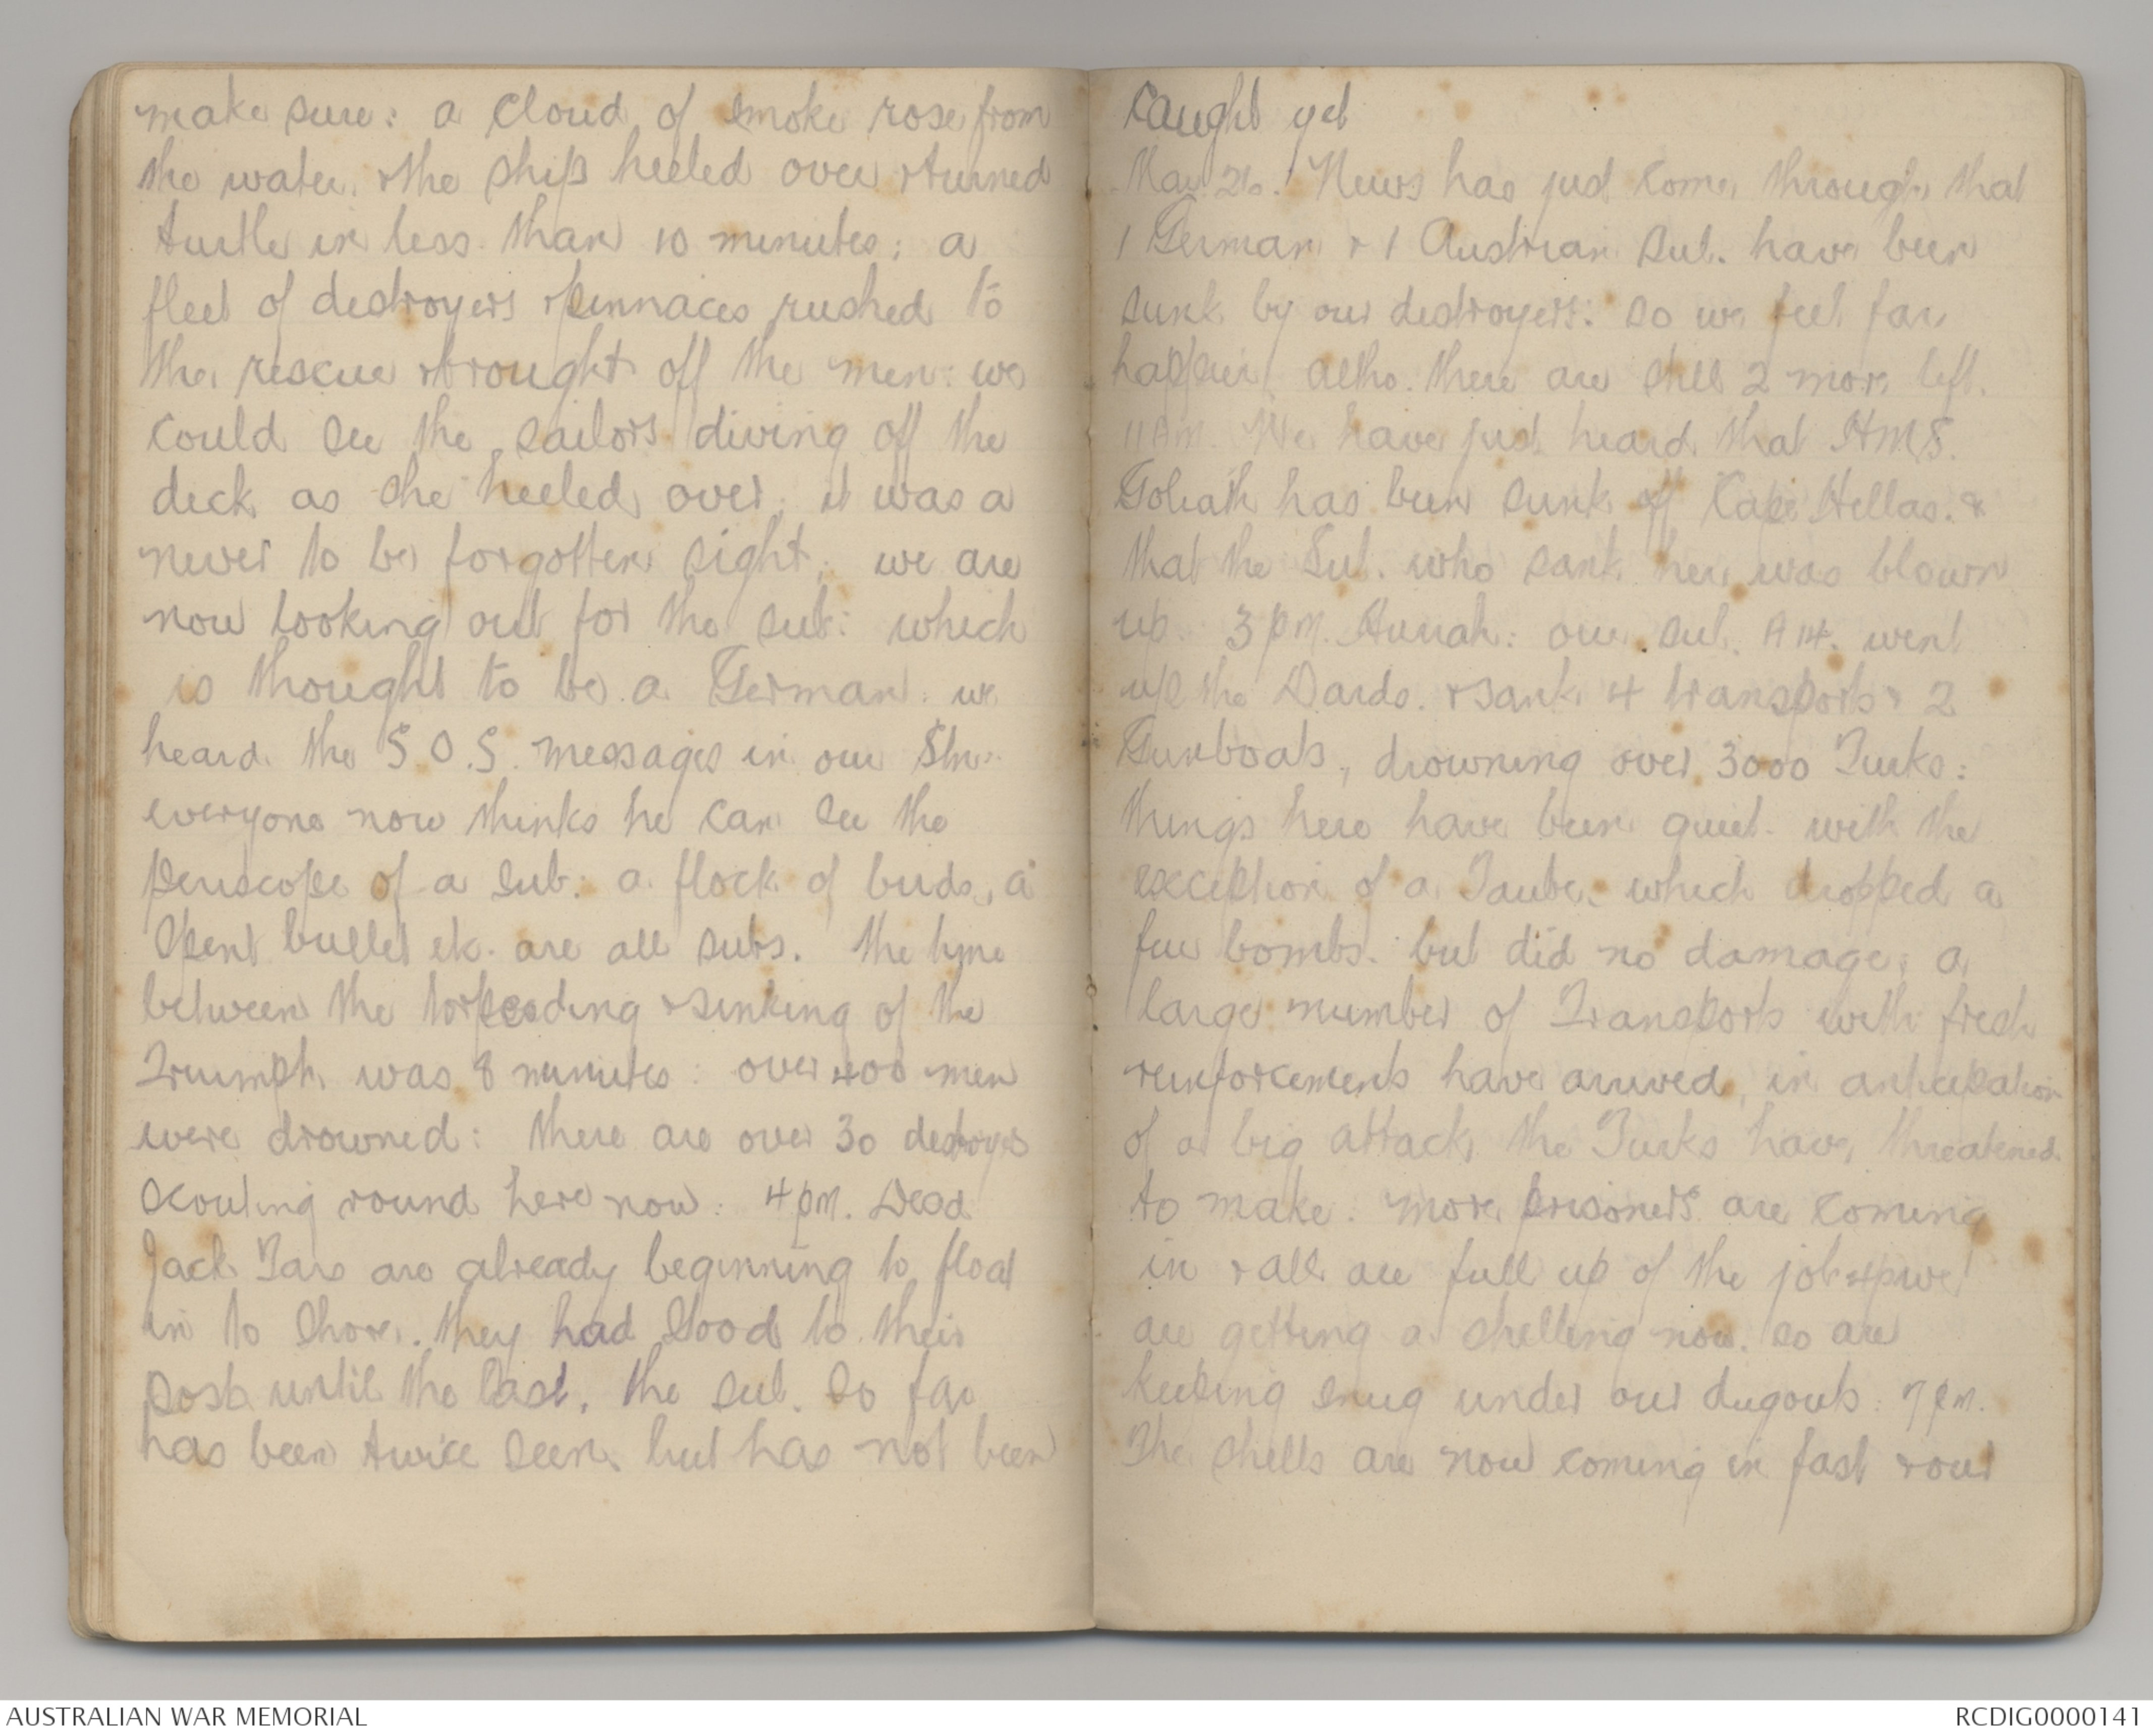 make sure: a cloud of smoke rose from
the water. & the ship heeled over & turned
turtle in less than 10 minutes; a
fleet of destroyers & pinnaces rushed to
the rescue & brought off the men: we
could see the sailors diving off the
deck as she heeled over, it was a
never to be forgotten sight, we are
now looking out for the sub: which
is thought to be a German: we
heard the S.O.S. messages in our Stn:
everyone now thinks he can see the
periscope of a sub: a flock of birds, a
spent bullet etc. are all subs. The tyme
between the torpeoding & sinking of the
Triumph was 8 minutes: over 400 men
were drowned: there are over 30 destroyers
scouting round here now: 4 pM. Dead
Jack Tars are already beginning to float
in to shore. they had stood to their
posts until the last, the sub. so far
has been twice seen, but has not been
caught yet
May 26. News has just come through that
1 German & 1 Austrian Sub. have been
sunk by our destroyers: so we feel far
happier, altho. there are still 2 more left.
11 AM. We have just heard that H.M.S.
Goliath has been sunk off Cape Hellas. &
that the Sub. who sank her, was blown
up. 3 pM. Hurrah: our sub. A 14. went
up the Dards. & sank 4 transports & 2
Gunboats, drowning over 3000 Turks:
things here have been quiet. with the
exception of a Taube, which dropped a
few bombs. but did no damage; a
large number of Transports with fresh
reinforcements have arrived, in anticipation
of a big attack the Turks have threatened
to make. more prisoners are coming
in & all are full up of the job we
are getting a shelling now. so are
keeping snug under our dugouts: 7 pM.
The shells are now coming in fast & our
AUSTRALIAN WAR MEMORIAL
RCDIG0000141